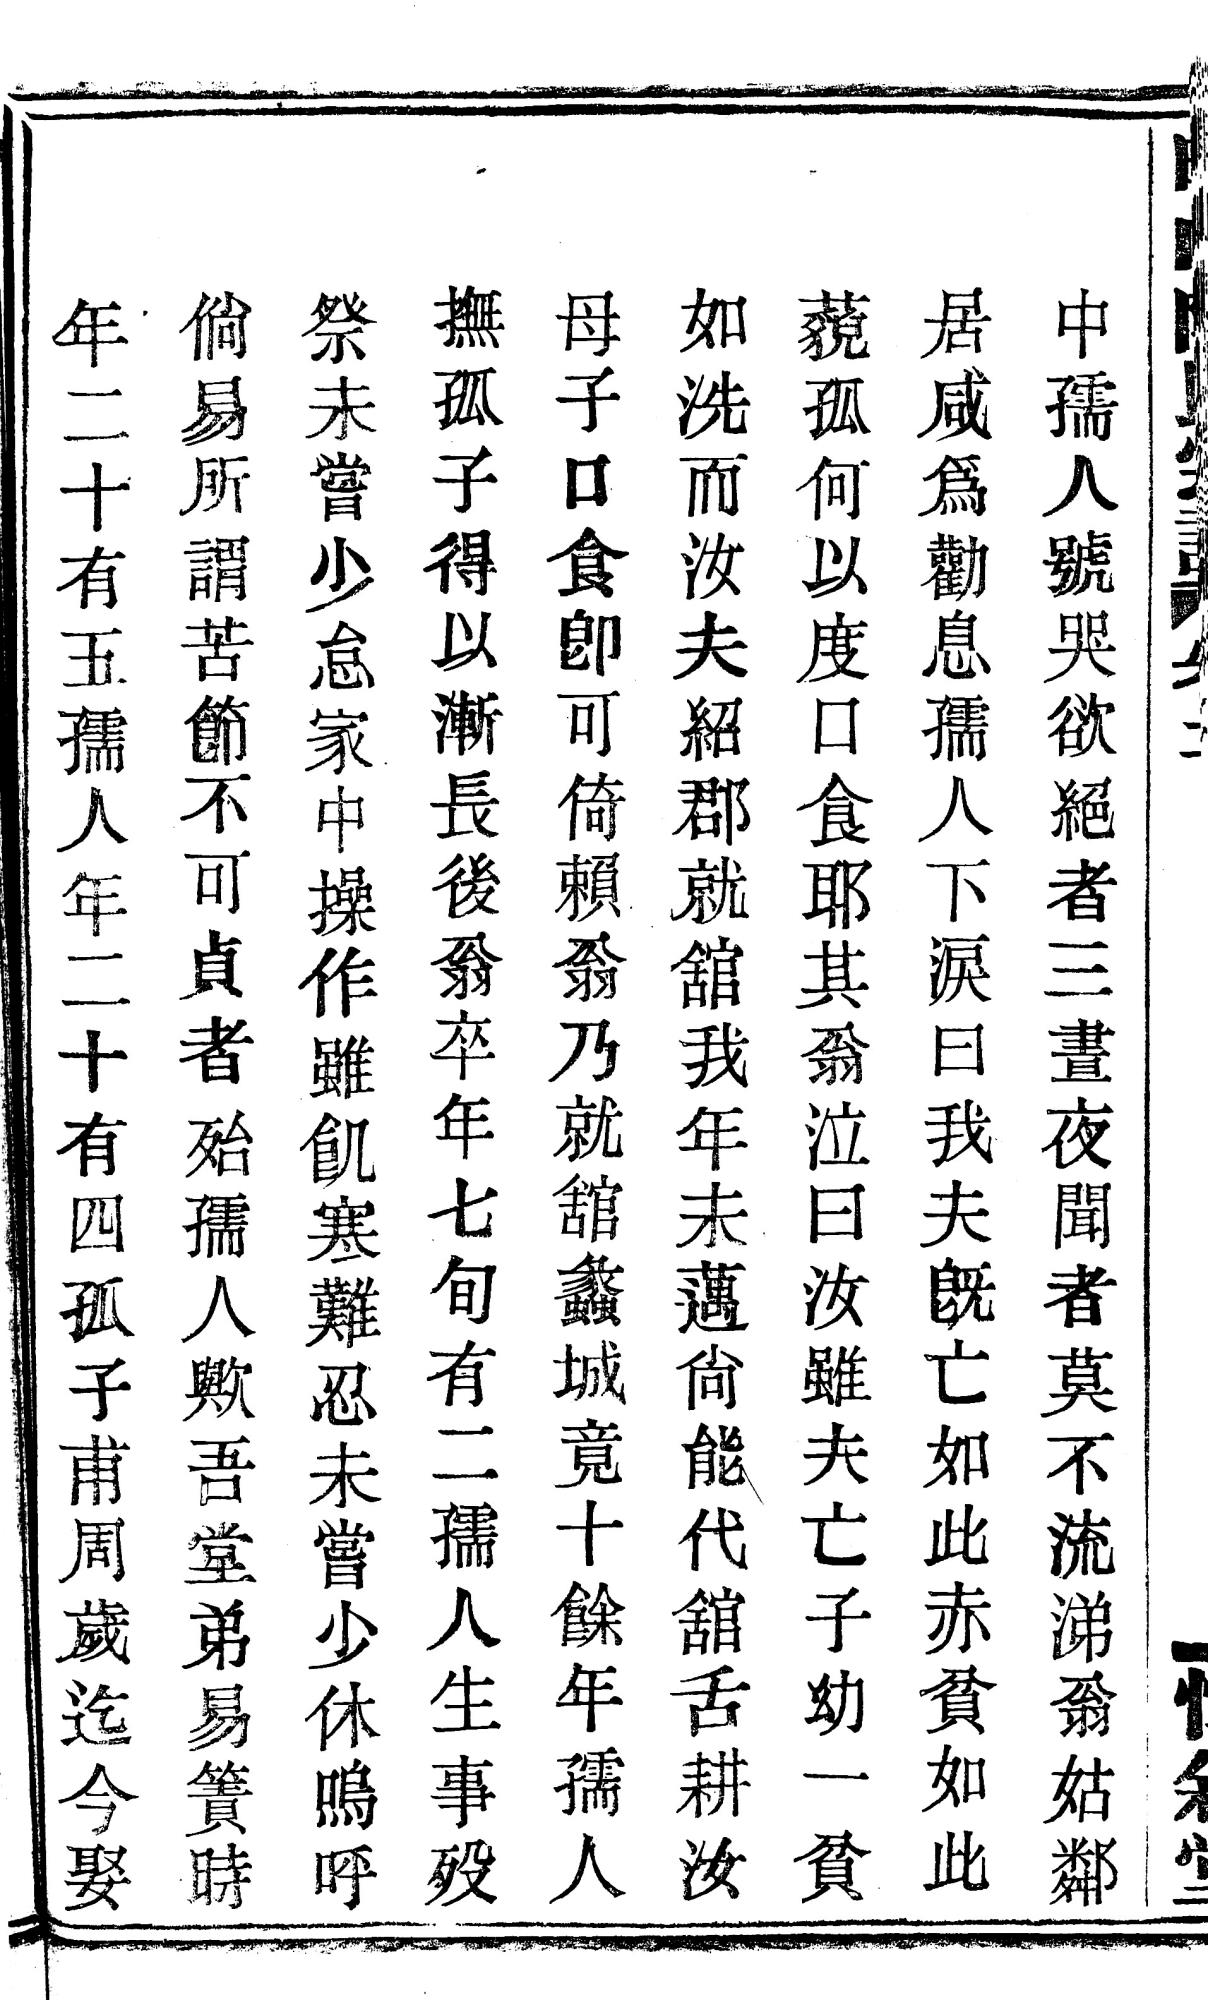 中孺人號哭欲絕者三晝夜聞者莫不流涕翁姑鄰
居咸爲勸息孺人下淚曰我夫旣亡如此赤貧如此
藐孤何以度口食耶其翁泣曰汝雖夫亡子幼一貧
如洗而汝夫紹郡就舘我年未邁尙能代舘舌耕汝
母子口食卽可倚賴翁乃就舘蠡城竟十餘年孺人
撫孤子得以漸長後翁卒年七旬有二孺人生事歿
祭未嘗少怠家中操作雖飢寒難忍未嘗少休嗚呼
倘易所謂苦節不可貞者殆孺人歟吾堂弟易簀時
年二十有五孺人年二十有四孤子甫周歲迄今娶